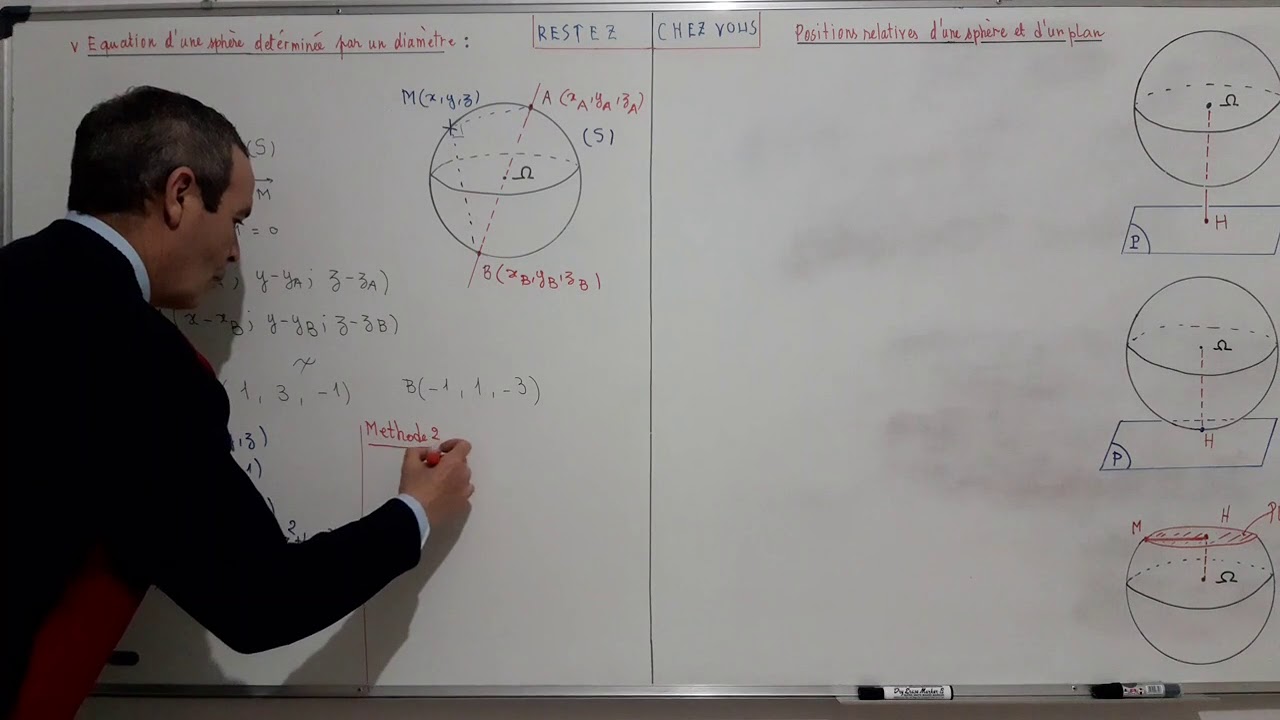 v Equation d'une sphère detérminée par un diamètre :
RESTEZ CHEZ VOUS
Positions relatives d'une sphère et d'un plan
M(x,y,z) A (xA,yA,zA)
(S)
(S)
M
= 0
Ω
B(xB,yB,zB)
; y-yA ; z-zA)
(x-xB ; y-yB ; z-zB)
1, 3, -1) B(-1, 1, -3)
Methode 2
,z)
1)
)
2
Ω
H
P
Ω
H
P
M H
Ω
Dry Erase Marker